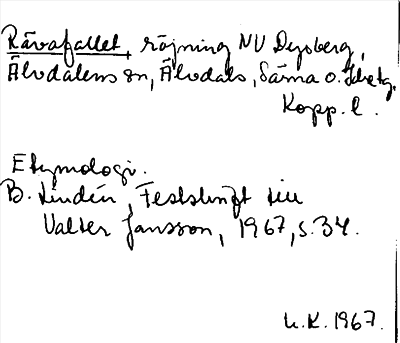 Rävafallet, röjning NV Dysberg,
Älvdalens sn, Älvdals, Särna o. Idre tg.
Kopp. l.
Etymologi.
B. Lindén, Festskrift till
Valter Jansson, 1967, s. 34.
L. K. 1967.